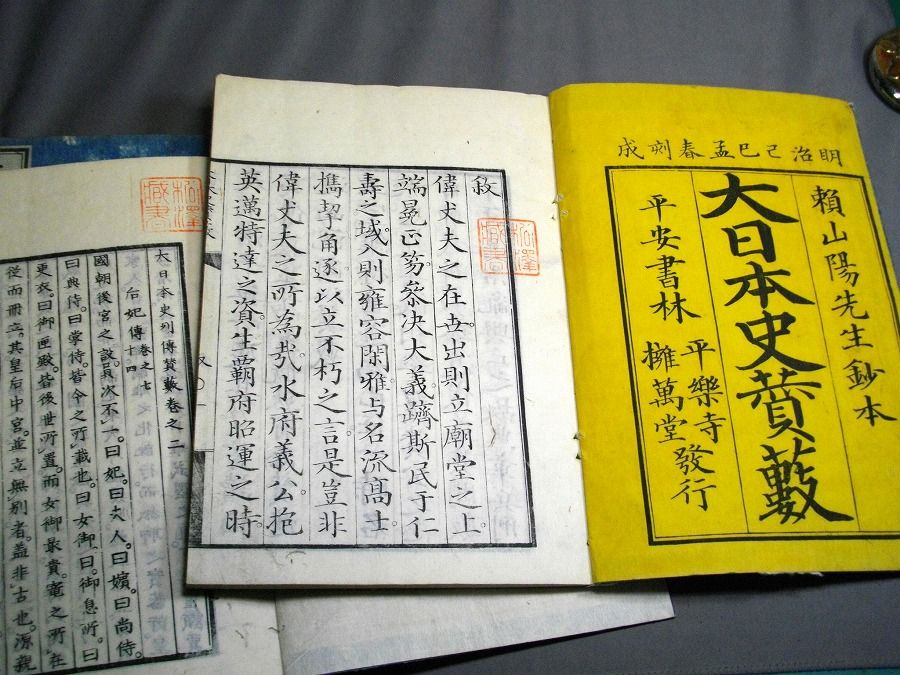 明治己巳孟春刻成
頼山陽先生鈔本
大日本史贊藪
平安書林
平樂寺
擁萬堂發行
敘
柳澤藏書
偉丈夫之在世出則立廟堂之上。
端冕正笏參决大義。躋斯民于仁
壽之域。入則雍容閑雅与名流高士。
擕挈角逐。以立不朽之言。是豈非
偉丈夫之所為哉。水府義公。抱
英邁特達之資。生覇府昭運之時。
柳澤藏書
大日本史列傳贊藪卷之二
后妃傳 卷之七十四
國朝後宮之設。員次不一。曰妃。曰夫人。曰嬪。曰尚侍。
曰典侍。曰掌侍。皆令之所載也。曰女御。曰御息所。曰
更衣。曰御匣殿。皆後世所置。而女御最貴。寵之所在
從而冊立。其皇后中宮。並立無別者。蓋非古也。源親